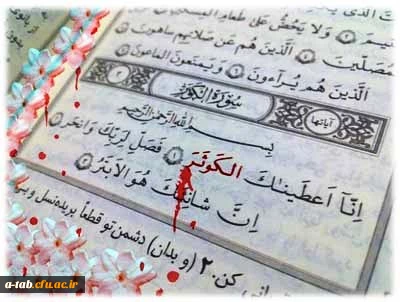 وَلا يَحُضُّ عَلىٰ طَعامِ المِسكينِ
الَّذينَ هُم عَن صَلاتِهِم ساهونَ
الَّذينَ هُم يُرآءونَ وَيَمنَعونَ الماعونَ
آیاتها سُورَةُ الكَوثَر
بِسمِ اللهِ الرَّحمٰنِ الرَّحيمِ
اِنّآ اَعطَينٰكَ الكَوثَرَ فَصَلِّ لِرَبِّكَ وَانحَر
اِنَّ شانِئَكَ هُوَ الاَبتَرُ
کن. ۲ (و بدان) دشمن تو قطعاً بریده‌نسل و بی
a-tab.cfu.ac.ir